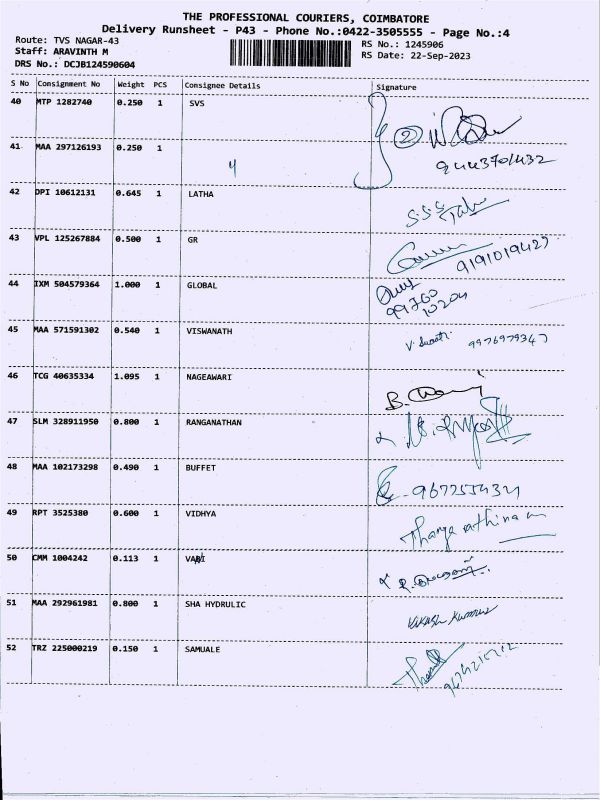 THE PROFESSIONAL COURIERS, COIMBATORE
Delivery Runsheet - P43 - Phone No.:0422-3505555 - Page No.:4
Route: TVS NAGAR-43
Staff: ARAVINTH M
DRS No.: DCJB124590604
RS No.: 1245906
RS Date: 22-Sep-2023
S No Consignment No Weight PCS Consignee Details Signature
40 MTP 1282740 0.250 1 SVS
2
41 MAA 297126193 0.250 1
4
9443701432
42 DPI 10612131 0.645 1 LATHA
43 VPL 125267884 0.500 1 GR
9191019427
44 IXM 504579364 1.000 1 GLOBAL
99760
10204
45 MAA 571591302 0.540 1 VISWANATH
9976979347
46 TCG 40635334 1.095 1 NAGEAWARI
47 SLM 328911950 0.800 1 RANGANATHAN
48 MAA 102173298 0.490 1 BUFFET
49 RPT 3525380 0.600 1 VIDHYA
50 CMM 1004242 0.113 1
51 MAA 292961981 0.800 1 SHA HYDRULIC
Vikash Kumar
52 TRZ 225000219 0.150 1 SAMUALE